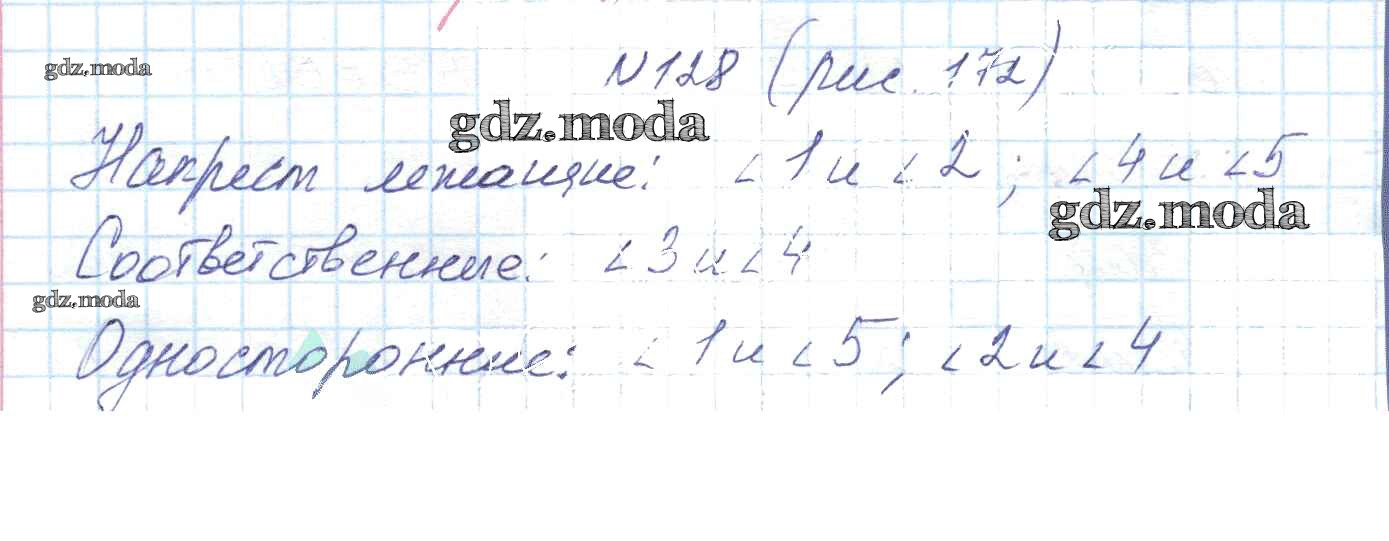 gdz.moda
N128 (рис. 172)
gdz.moda
Накрест лежащие: ∠1 и ∠2; ∠4 и ∠5
gdz.moda
Соответственные: ∠3 и ∠4
gdz.moda
Односторонние: ∠1 и ∠5; ∠2 и ∠4